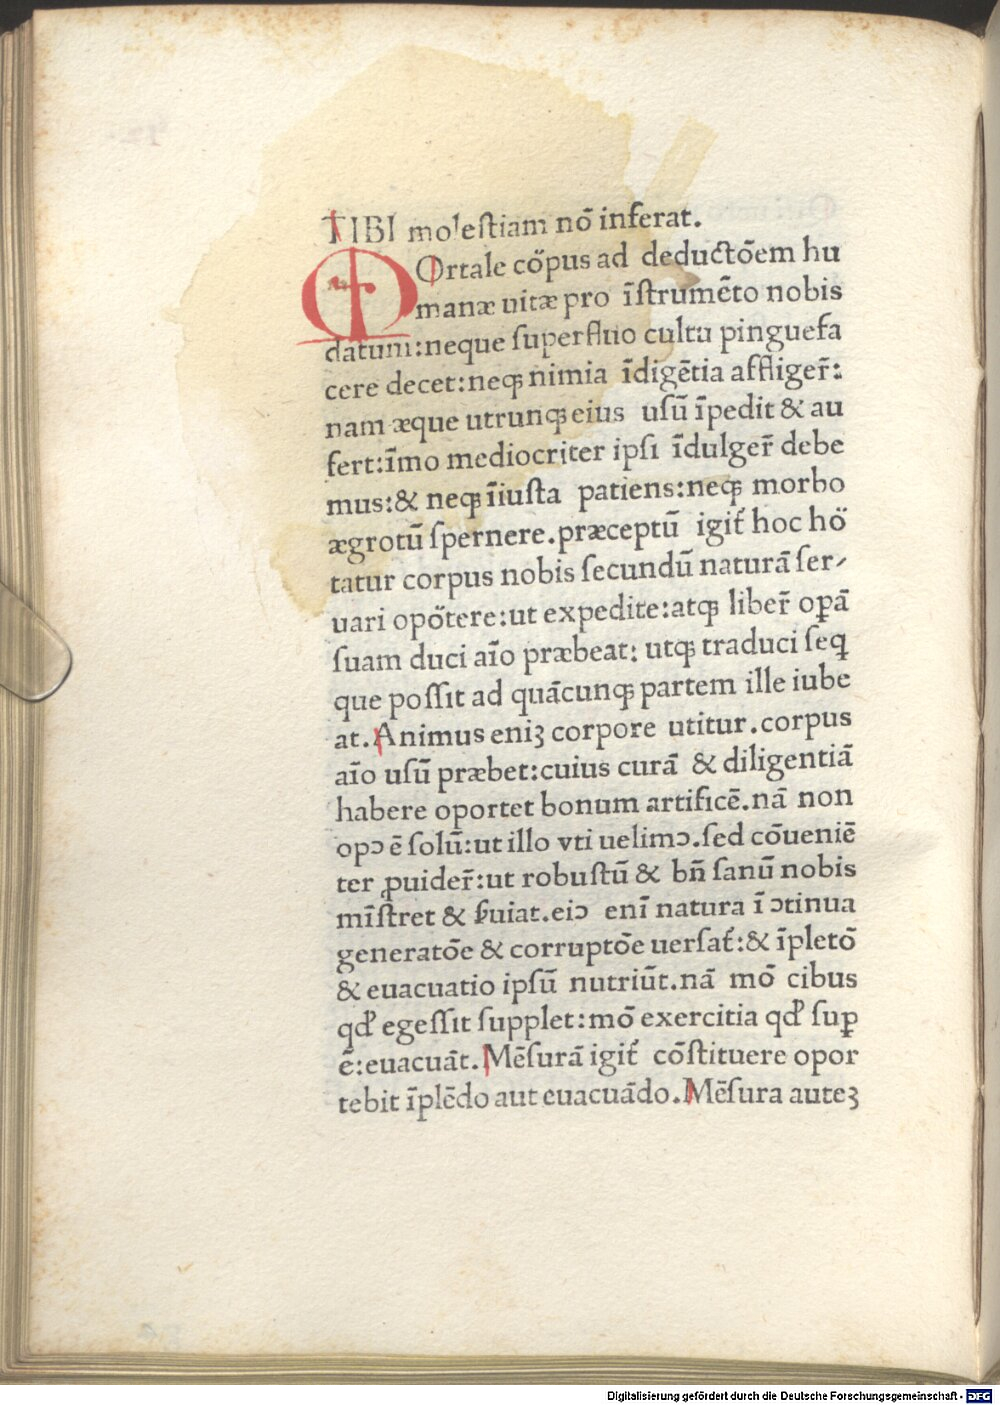 TIBI moleſtiam nō inferat.
MOrtale cőpus ad deductōem hu
manæ uitæ pro īſtrumēto nobis
datum:neque ſuperfluo cultu pinguefa
cere decet:neqꝫ nimia īdigētia affliger̄:
nam æque utrunqꝫ eius uſū īpedit & au
fert:īmo mediocriter ipſi īdulger̄ debe
mus:& neqꝫ īiuſta patiens:neqꝫ morbo
ægrotū ſpernere.præceptū igit̄ hoc hő
tatur corpus nobis ſecundū naturā ſer⸗
uari opőtere:ut expedite:atqꝫ liber̄ oꝑā
ſuam duci aīo præbeat: utqꝫ traduci ſeq̨
que poſſit ad quācunqꝫ partem ille iube
at.Animus eniꝫ corpore utitur.corpus
aīo uſū præbet:cuius curā & diligentiā
habere oportet bonum artificē.nā non
opↄ ē ſolū:ut illo vti uelimↄ.ſed cōueniē
ter ꝓuider̄:ut robuſtū & bn̄ ſanū nobis
mīſtret & ſ̄uiat.eiↄ enī natura ī ↄtinua
generatōe & corruptōe uerſat̄:& īpletō
& euacuatio ipſū nutriūt.nā mō cibus
qđ egeſſit ſupplet:mō exercitia qđ ſuꝑ
ē:euacuāt.Mēſurā igit̄ cōſtituere opor
tebit īplēdo aut euacuādo.Mēſura auteꝫ
Digitalisierung gefördert durch die Deutsche Forschungsgemeinschaft - DFG